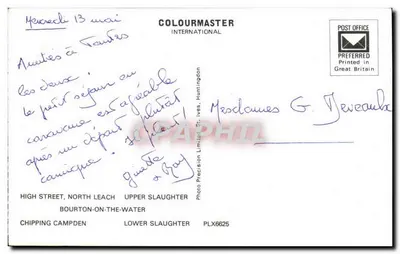 Mercredi 13 mai
COLOURMASTER
INTERNATIONAL
POST OFFICE
PREFERRED
Printed in
Great Britain
Amitiés à toutes
les deux!
le petit séjour en
caravane est agréable
après un départ plutôt
comique!
Mesdames G. Deveaulx
CPAPHIL.com
Photo Precision Limited, St. Ives, Huntingdon
HIGH STREET, NORTH LEACH UPPER SLAUGHTER
BOURTON-ON-THE-WATER
CHIPPING CAMPDEN LOWER SLAUGHTER PLX6625